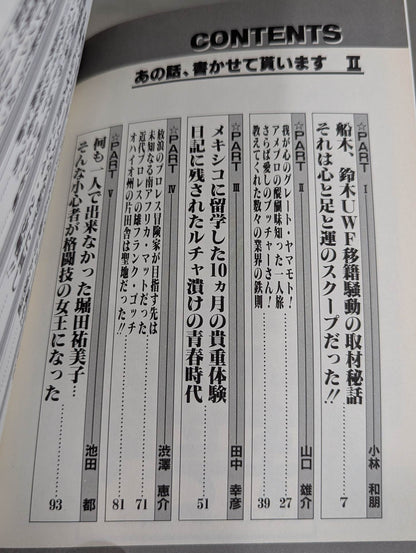 CONTENTS
あの話、書かせて貰います Ⅱ
☆PART Ⅰ
船木、鈴木UWF移籍騒動の取材秘話
それは心と足と運のスクープだった!!
小林 和朋
7
☆PART Ⅱ
我が心のグレート・ヤマモト!
アメプロの醍醐味知った一人旅
27
さらば愛しのブッチャーさん!
教えてくれた数々の業界の鉄則
39
山口 雄介
☆PART Ⅲ
メキシコに留学した10ヵ月の貴重体験
日記に残されたルチャ漬けの青春時代
田中 幸彦
51
☆PART Ⅳ
放浪のプロレス冒険家が目指す先は
未知なる南アフリカ・マットだった
71
近代プロレスの雄フランク・ゴッチ
オハイオ州の片田舎は聖地だった!!
81
渋澤 恵介
☆PART Ⅴ
何も一人で出来なかった堀田祐美子…
そんな小心者が格闘技の女王になった
池田 都
93